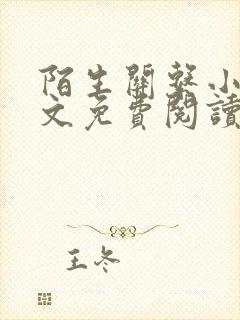 陌生關繫小
文免費閱讀
王冬